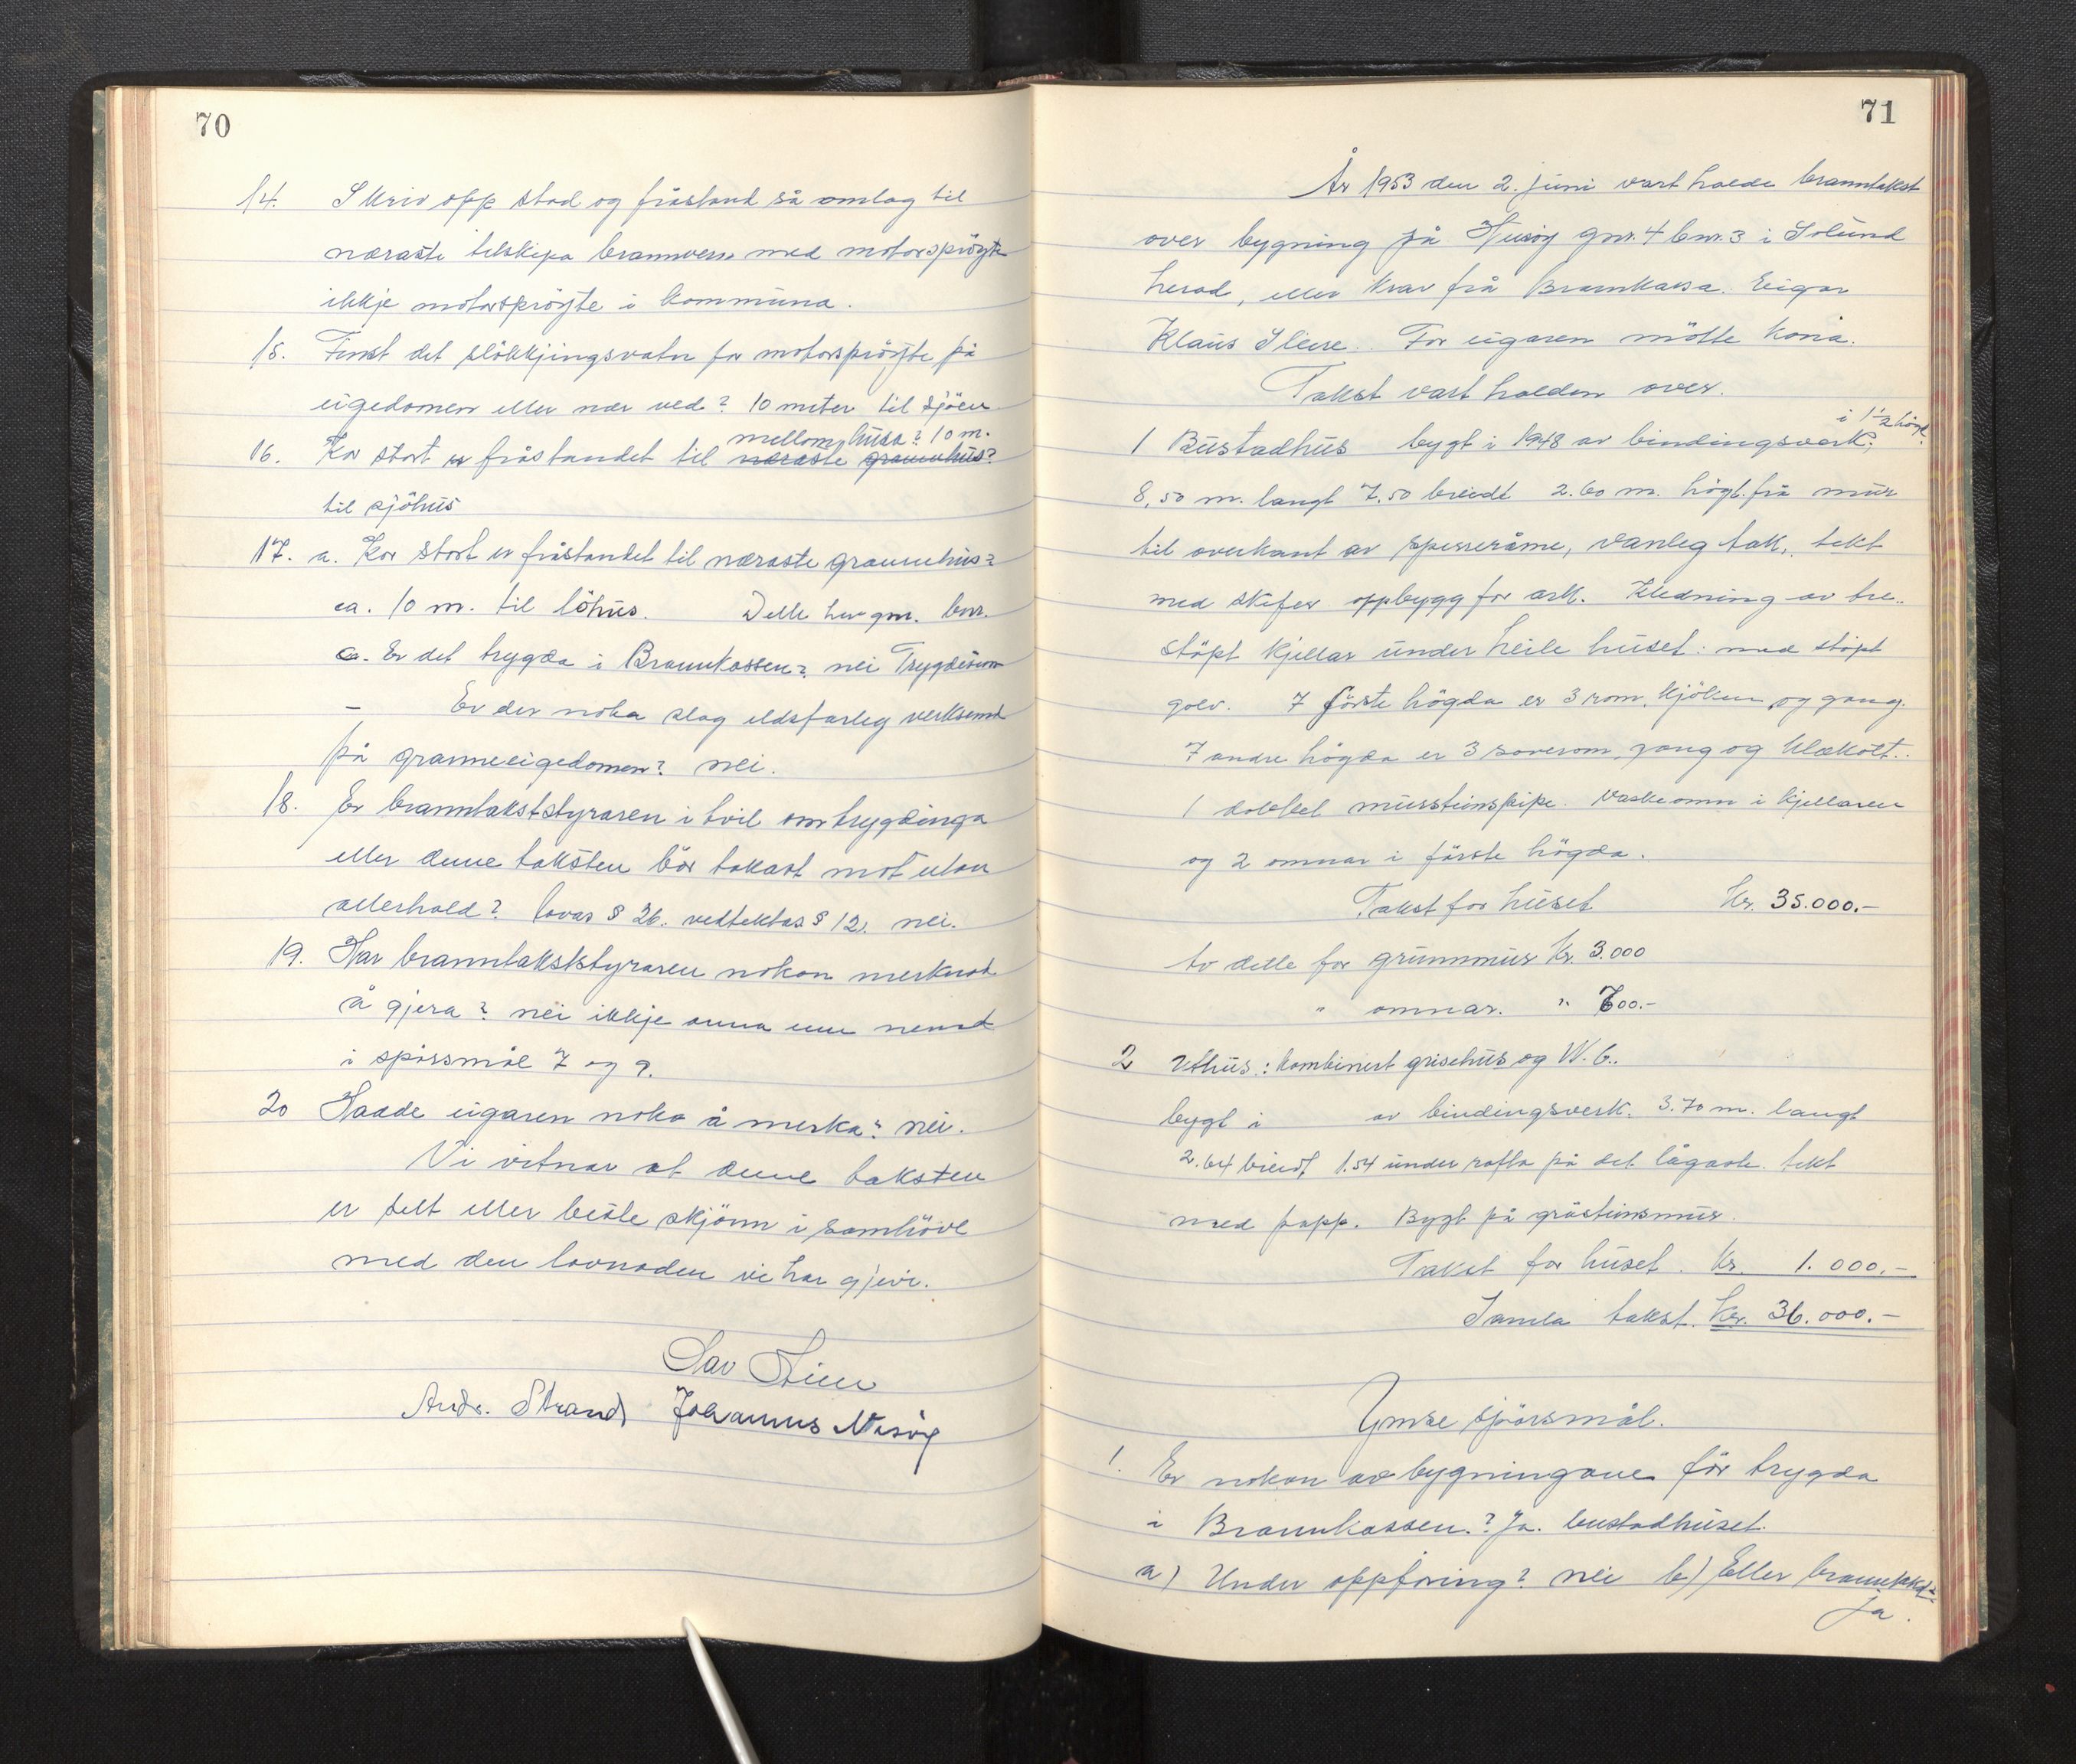 70
14. Skriv opp stad og fråstand så omlag til
næraste tilskipa brannvern med motorsprøyte
ikkje motorsprøyte i kommuna.
15. Finst det slökkjingsvatn for motorsprøyte på
eigedomen eller nær ved? 10 meter til sjöen
mellom husa? 10 m.
16. Kor stort er fråstandet til næraste grannehus?
til sjöhus
17. a. Kor stort er fråstandet til næraste grannehus?
ca. 10 m. til löhus. Dette har gnr. bnr.
a. Er det trygda i Brannkassen? nei Trygdesum
— Er der noka slag eldsfarleg verksemd
på granneeigedomen? nei.
18. Er branntakststyraren i tvil om trygdinga
eller denne taksten bör takast mot utan
atterhald? lovas § 26. vedtektas § 12. nei.
19. Har branntakststyraren nokon merknad
å gjera? nei ikkje anna enn nemnt
i spörsmål 7 og 9.
20 Hadde eigaren noko å merka? nei.
Vi vitnar at denne taksten
er sett etter beste skjönn i samhöve
med den lovnaden vi har gjeve.
Lav Steen
Andr. Strand Johannes Nesöy
71
År 1953 den 2. juni vart halde branntakst
over bygning på Husöy gnr. 4 bnr. 3 i Solund
herad, etter krav frå Brannkassa. Eigar
Klaus Steire. For eigaren mötte kona.
Takst vart halden over.
i 1 1/2 högd.
1 Bustadhus bygt i 1948 av bindingsverk;
8,50 m. langt 7.50 breidt 2.60 m. högt frå mur
til overkant av sperreråme, vanleg tak, tekt
med skifer oppbygg for ark. Kledning av tre.
stöpt kjellar under heile huset: med stöpt
golv. I förste högda er 3 rom, kjöken og gang.
I andre högda er 3 soverom, gang og klækott.
1 dobbel mursteinspipe. Vaskeomn i kjellaren
og 2 omnar i förste högda.
Takst for huset Kr. 35.000.-
Av dette for grunnmur Kr. 3.000
" omnar. " 700.-
2 Uthus: kombinert grisehus og W.C.
bygt i av bindingsverk. 3.70 m. langt
2.64 breidt, 1.54 under rafta på det lågaste. tekt
med papp. Bygt på gråsteinsmur.
Takst for huset. Kr. 1.000.-
Samla takst. Kr. 36.000.-
Ymse spörsmål.
1. Er nokon av bygningane för trygda
i Brannkassen? Ja. bustadhuset.
a) Under oppföring? nei b) Etter branntakst?
ja.